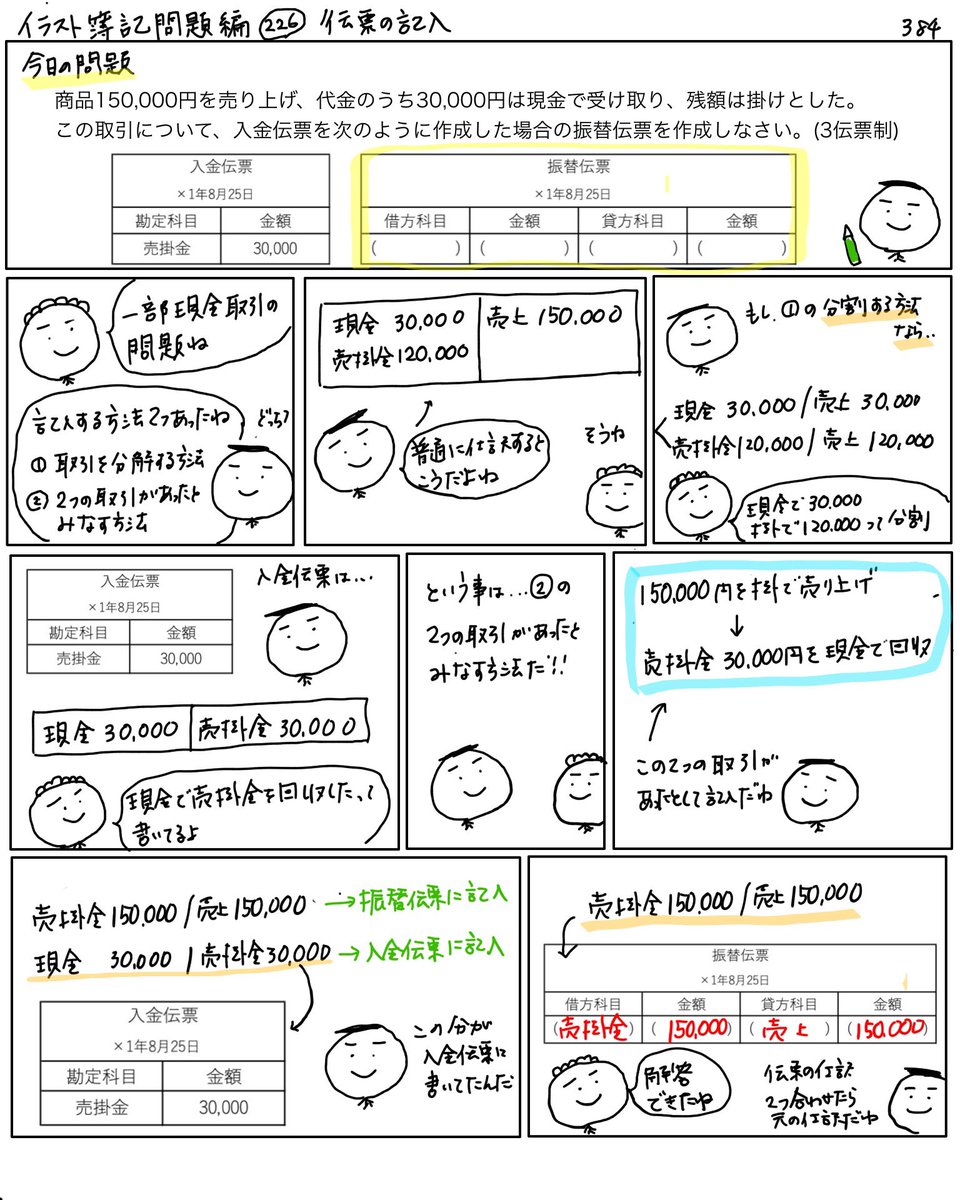 イラスト簿記問題編 226 伝票の記入
384
今日の問題
商品150,000円を売り上げ、代金のうち30,000円は現金で受け取り、残額は掛けとした。
この取引について、入金伝票を次のように作成した場合の振替伝票を作成しなさい。(3伝票制)
入金伝票
×1年8月25日
勘定科目 金額
売掛金 30,000
振替伝票
×1年8月25日
借方科目 金額 貸方科目 金額
( ) ( ) ( ) ( )
一部現金取引の
問題ね
記入する方法2つあったね
① 取引を分解する方法
② 2つの取引があったと
みなす方法
どっち?
現金 30,000 売上 150,000
売掛金 120,000
普通に仕訳すると
こうだよね
そうね
もし、①の分割する方法
なら..
現金 30,000 / 売上 30,000
売掛金 120,000 / 売上 120,000
現金で30,000
掛けで120,000って分割
入金伝票
×1年8月25日
勘定科目 金額
売掛金 30,000
入金伝票は...
現金 30,000 売掛金 30,000
現金で売掛金を回収したって
書いてるよ
という事は...②の
2つの取引があったと
みなす方法だ!!
150,000円を掛で売り上げ
↓
売掛金 30,000円を現金で回収
この2つの取引が
あったとして記入だね
売掛金150,000 / 売上150,000 → 振替伝票に記入
現金 30,000 / 売掛金30,000 → 入金伝票に記入
入金伝票
×1年8月25日
勘定科目 金額
売掛金 30,000
この分が
入金伝票に
書いてたんだ
売掛金150,000 / 売上150,000
振替伝票
×1年8月25日
借方科目 金額 貸方科目 金額
(売掛金) (150,000) (売上) (150,000)
解答
できたね
伝票の仕訳
2つ合わせたら
元の仕訳だね